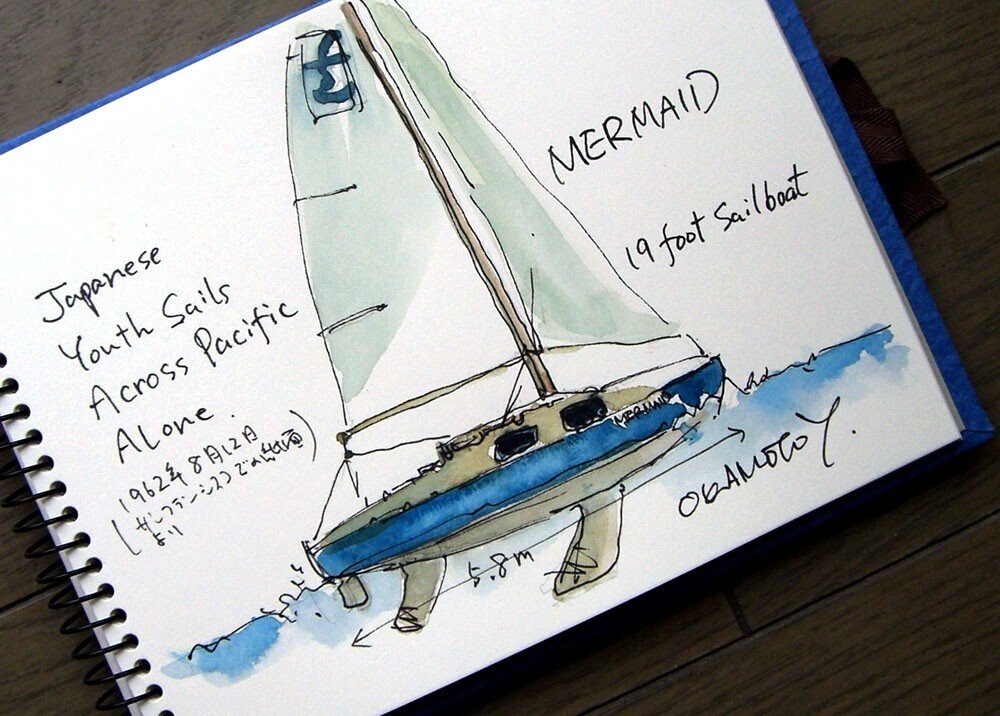 MERMAID
19 foot Sailboat
Japanese
Youth Sails
Across Pacific
Alone.
1962年8月12日
より
MERMAID
5.8m
OKAMOTO Y.